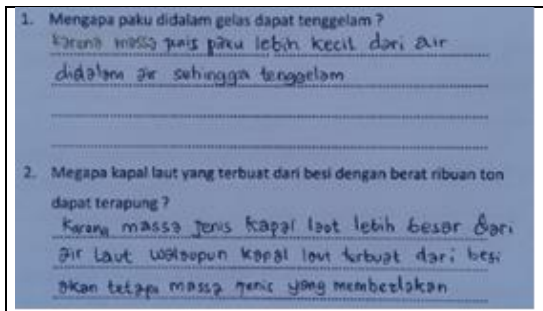 1. Mengapa paku didalam gelas dapat tenggelam ?
Karena massa jenis paku lebih kecil dari air
didalam air sehingga tenggelam
2. Megapa kapal laut yang terbuat dari besi dengan berat ribuan ton
dapat terapung ?
Karena massa jenis kapal laut lebih besar dari
air laut walaupun kapal laut terbuat dari besi
akan tetapi massa jenis yang membedakan